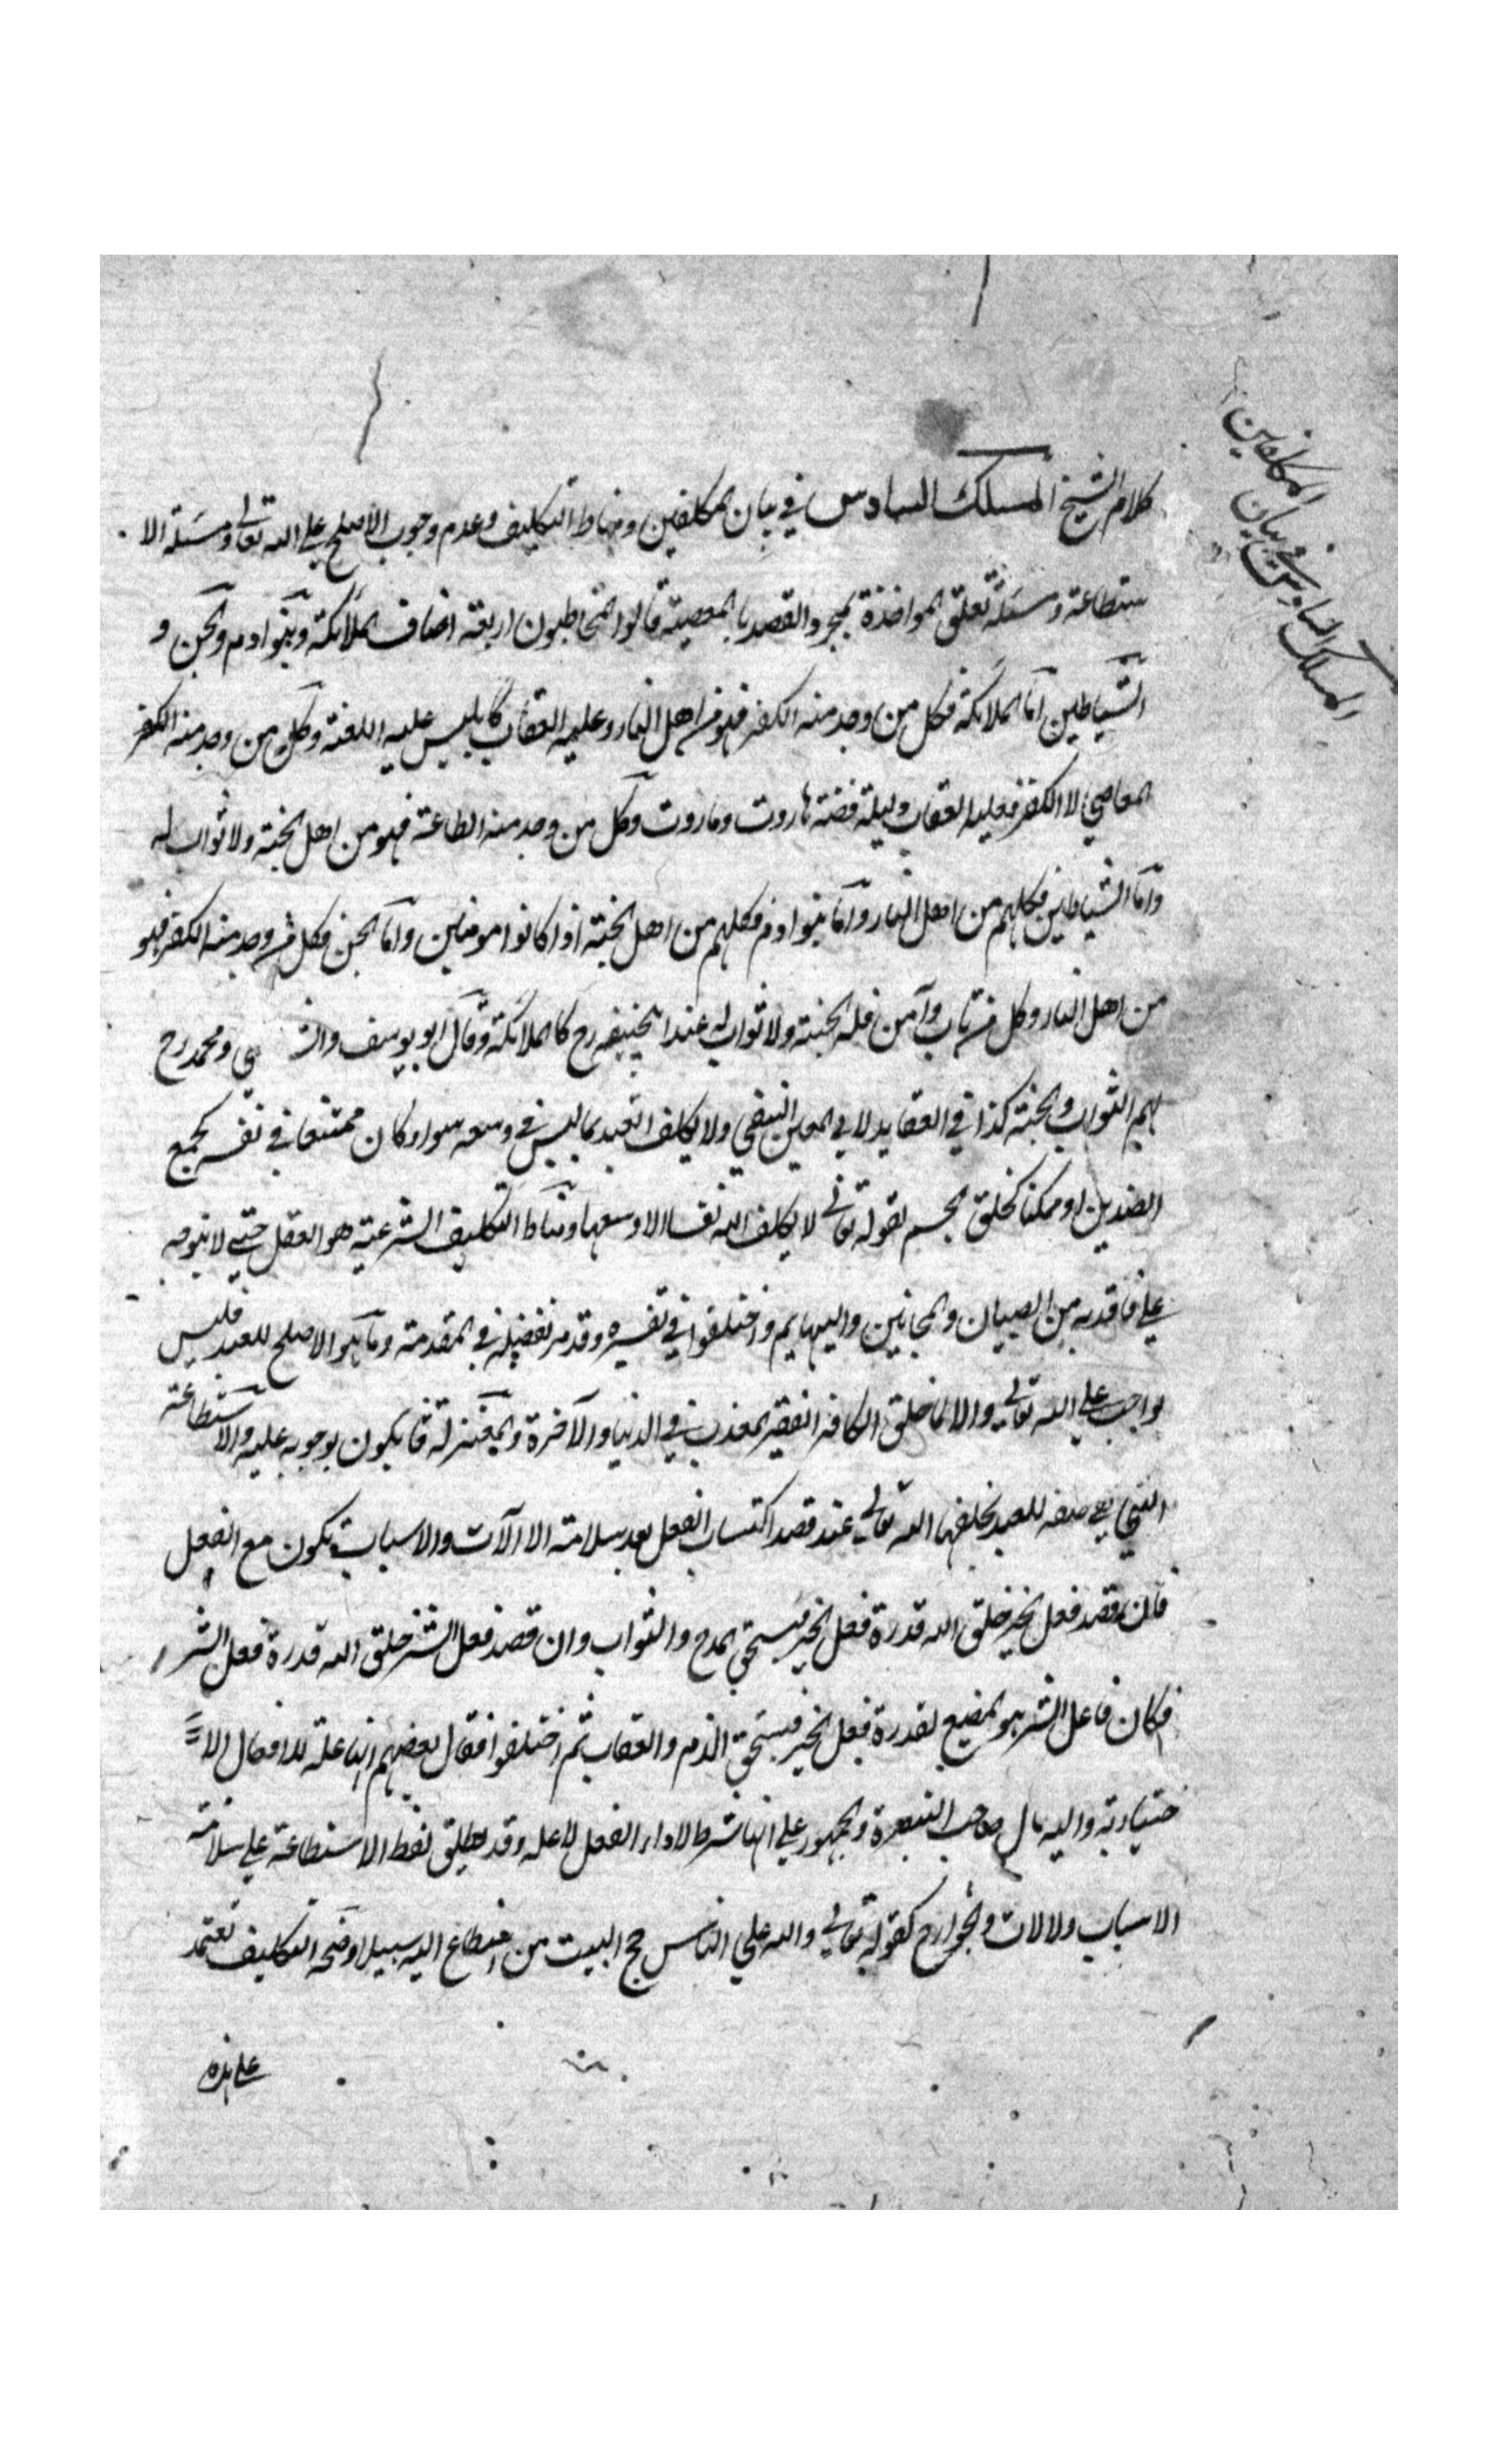 كلام الشيخ المسلك السادس في بيان المكلفين ومناط التكليف وعدم وجوب الاصلح على الله تعالى ومسئلة الا
ستطاعة ومسئلة تعلق المواخذة بمجرد القصد بالمعصية قالوا المخاطبون اربعة اصناف الملائكة وبنوا ادم والجن و
الشياطين اما الملائكة فكل من وجد منه الكفر فهو من اهل النار وعليه العقاب كابليس عليه اللعنة وكل من وجد منه الكفر
المعاصي لا الكفر فعليه العقاب وليله قصة هاروت وماروت وكل من وجد منه الطاعة فهو من اهل الجنة ولا ثواب له
واما الشياطين فكلهم من اهل النار واما بنوا ادم فكلهم من اهل الجنة اذا كانوا مومنين واما الجن فكل من وجد منه الكفر فهو
من اهل النار وكل من تاب وآمن فله الجنة ولا ثواب له عند ابيحنيفه رح كالملائكة وقال ابو يوسف والش في ومحمد رح
لهم الثواب والجنة كذا في العقايد لابي المعين النسفي ولا يكلف العبد بما ليس في وسعه سواء كان ممتنعا في نفسه كجمع
الضدين او ممكنا كخلق الجسم لقوله تعالى لا يكلف الله نفسا الا وسعها ومناط التكليف الشرعية هو العقل حتى لا يتوجه
على فاقده من الصبيان والمجانين والبهايم واختلفوا في تفسيره وقد مر تفضيله في المقدمة وما هو الاصلح للعبد فليس
بواجب على الله تعالى والا لما خلق الكافر الفقير المعذب في الدنيا والآخرة والمعتزلة قايلون بوجوبه عليه والاستطاعة
التي هي صفه للعبد يخلقها الله تعالى عند قصد اكتساب الفعل بعد سلامة الا الآت والاسباب يكون مع الفعل
فان قصد فعل الخير خلق الله قدرة فعل الخير فيستحق المدح والثواب وان قصد فعل الشر خلق الله قدرة فعل الشر
فكان فاعل الشر هو المضيع لقدرة فعل الخير فيستحق الذم والعقاب ثم اختلفوا فقال بعضهم انها علة للافعال الا
ختيارية واليه مال صاحب التبصرة والجمهور على انها شرط لاداء الفعل لا علة وقد يطلق لفظ الاستطاعة على سلامة
الاسباب ولالات والجوارح كقوله تعالى والله على الناس حج البيت من استطاع اليه سبيلا وصحة التكليف تعتمد
على هذه
المسلك السادس في بيان
المكلفين